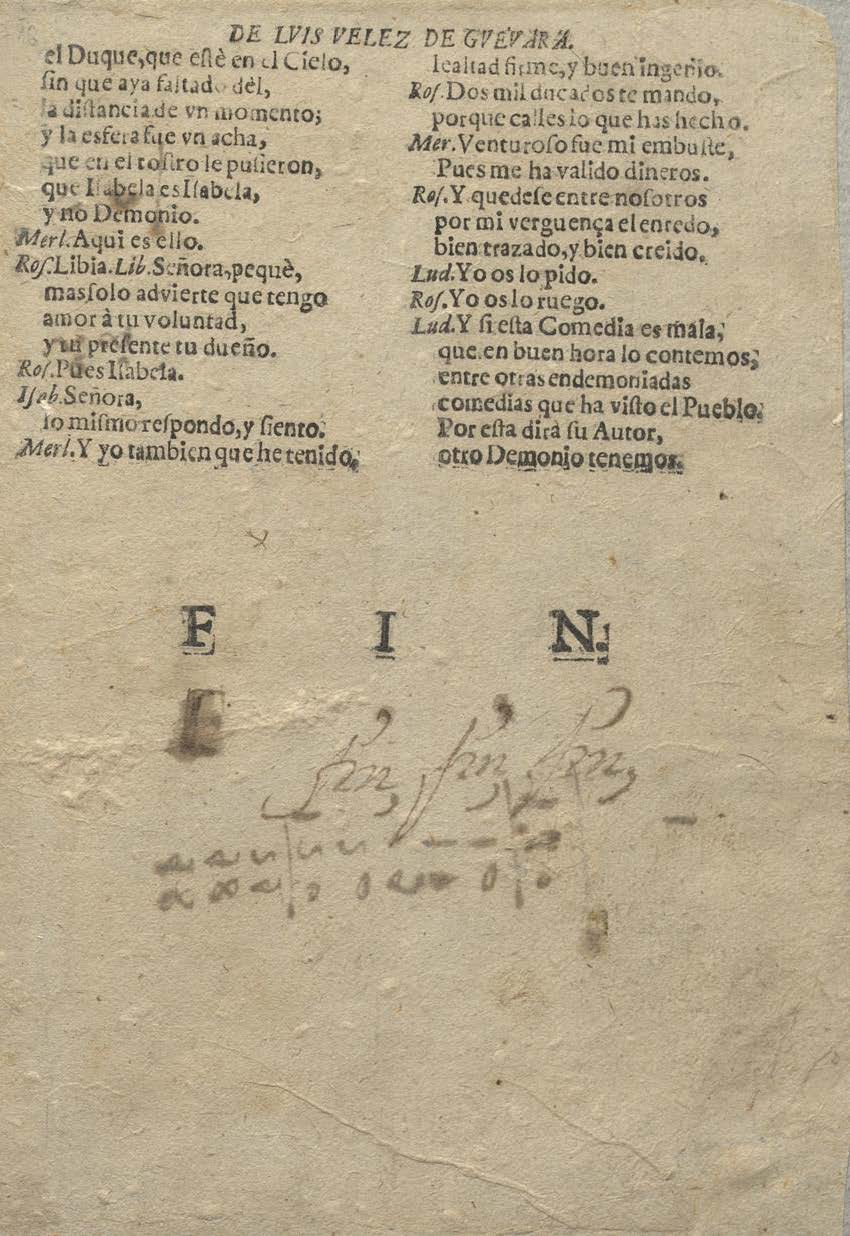 DE LVIS VELEZ DE GVEVARA.
el Duque, que estè en el Cielo,
sin que aya faltado dèl,
la distancia de vn momento;
y la esfera fue vn acha,
que en el rostro le pusieron,
que Isabela es Isabela,
y no Demonio.
Merl. Aqui es ello.
Ros. Libia. Lib. Señora, pequè,
mas solo advierte que tengo
amor à tu voluntad,
y tu presente tu dueño.
Ros. Pues Isabela.
Iseb. Señora,
lo mismo respondo, y siento.
Merl. Y yo tambien que he tenido,
lealtad firme, y buen ingenio.
Ros. Dos mil ducados te mando,
porque calles lo que has hecho.
Mer. Venturoso fue mi embuste,
Pues me ha valido dineros.
Ros. Y quedese entre nosotros
por mi verguença el enredo,
bien trazado, y bien creido.
Lud. Yo os lo pido.
Ros. Yo os lo ruego.
Lud. Y si esta Comedia es mala,
que en buen hora lo contemos,
entre otras endemoniadas
comedias que ha visto el Pueblo.
Por esta dirà su Autor,
otro Demonio tenemos.
F I N.
fin, fin, fin,